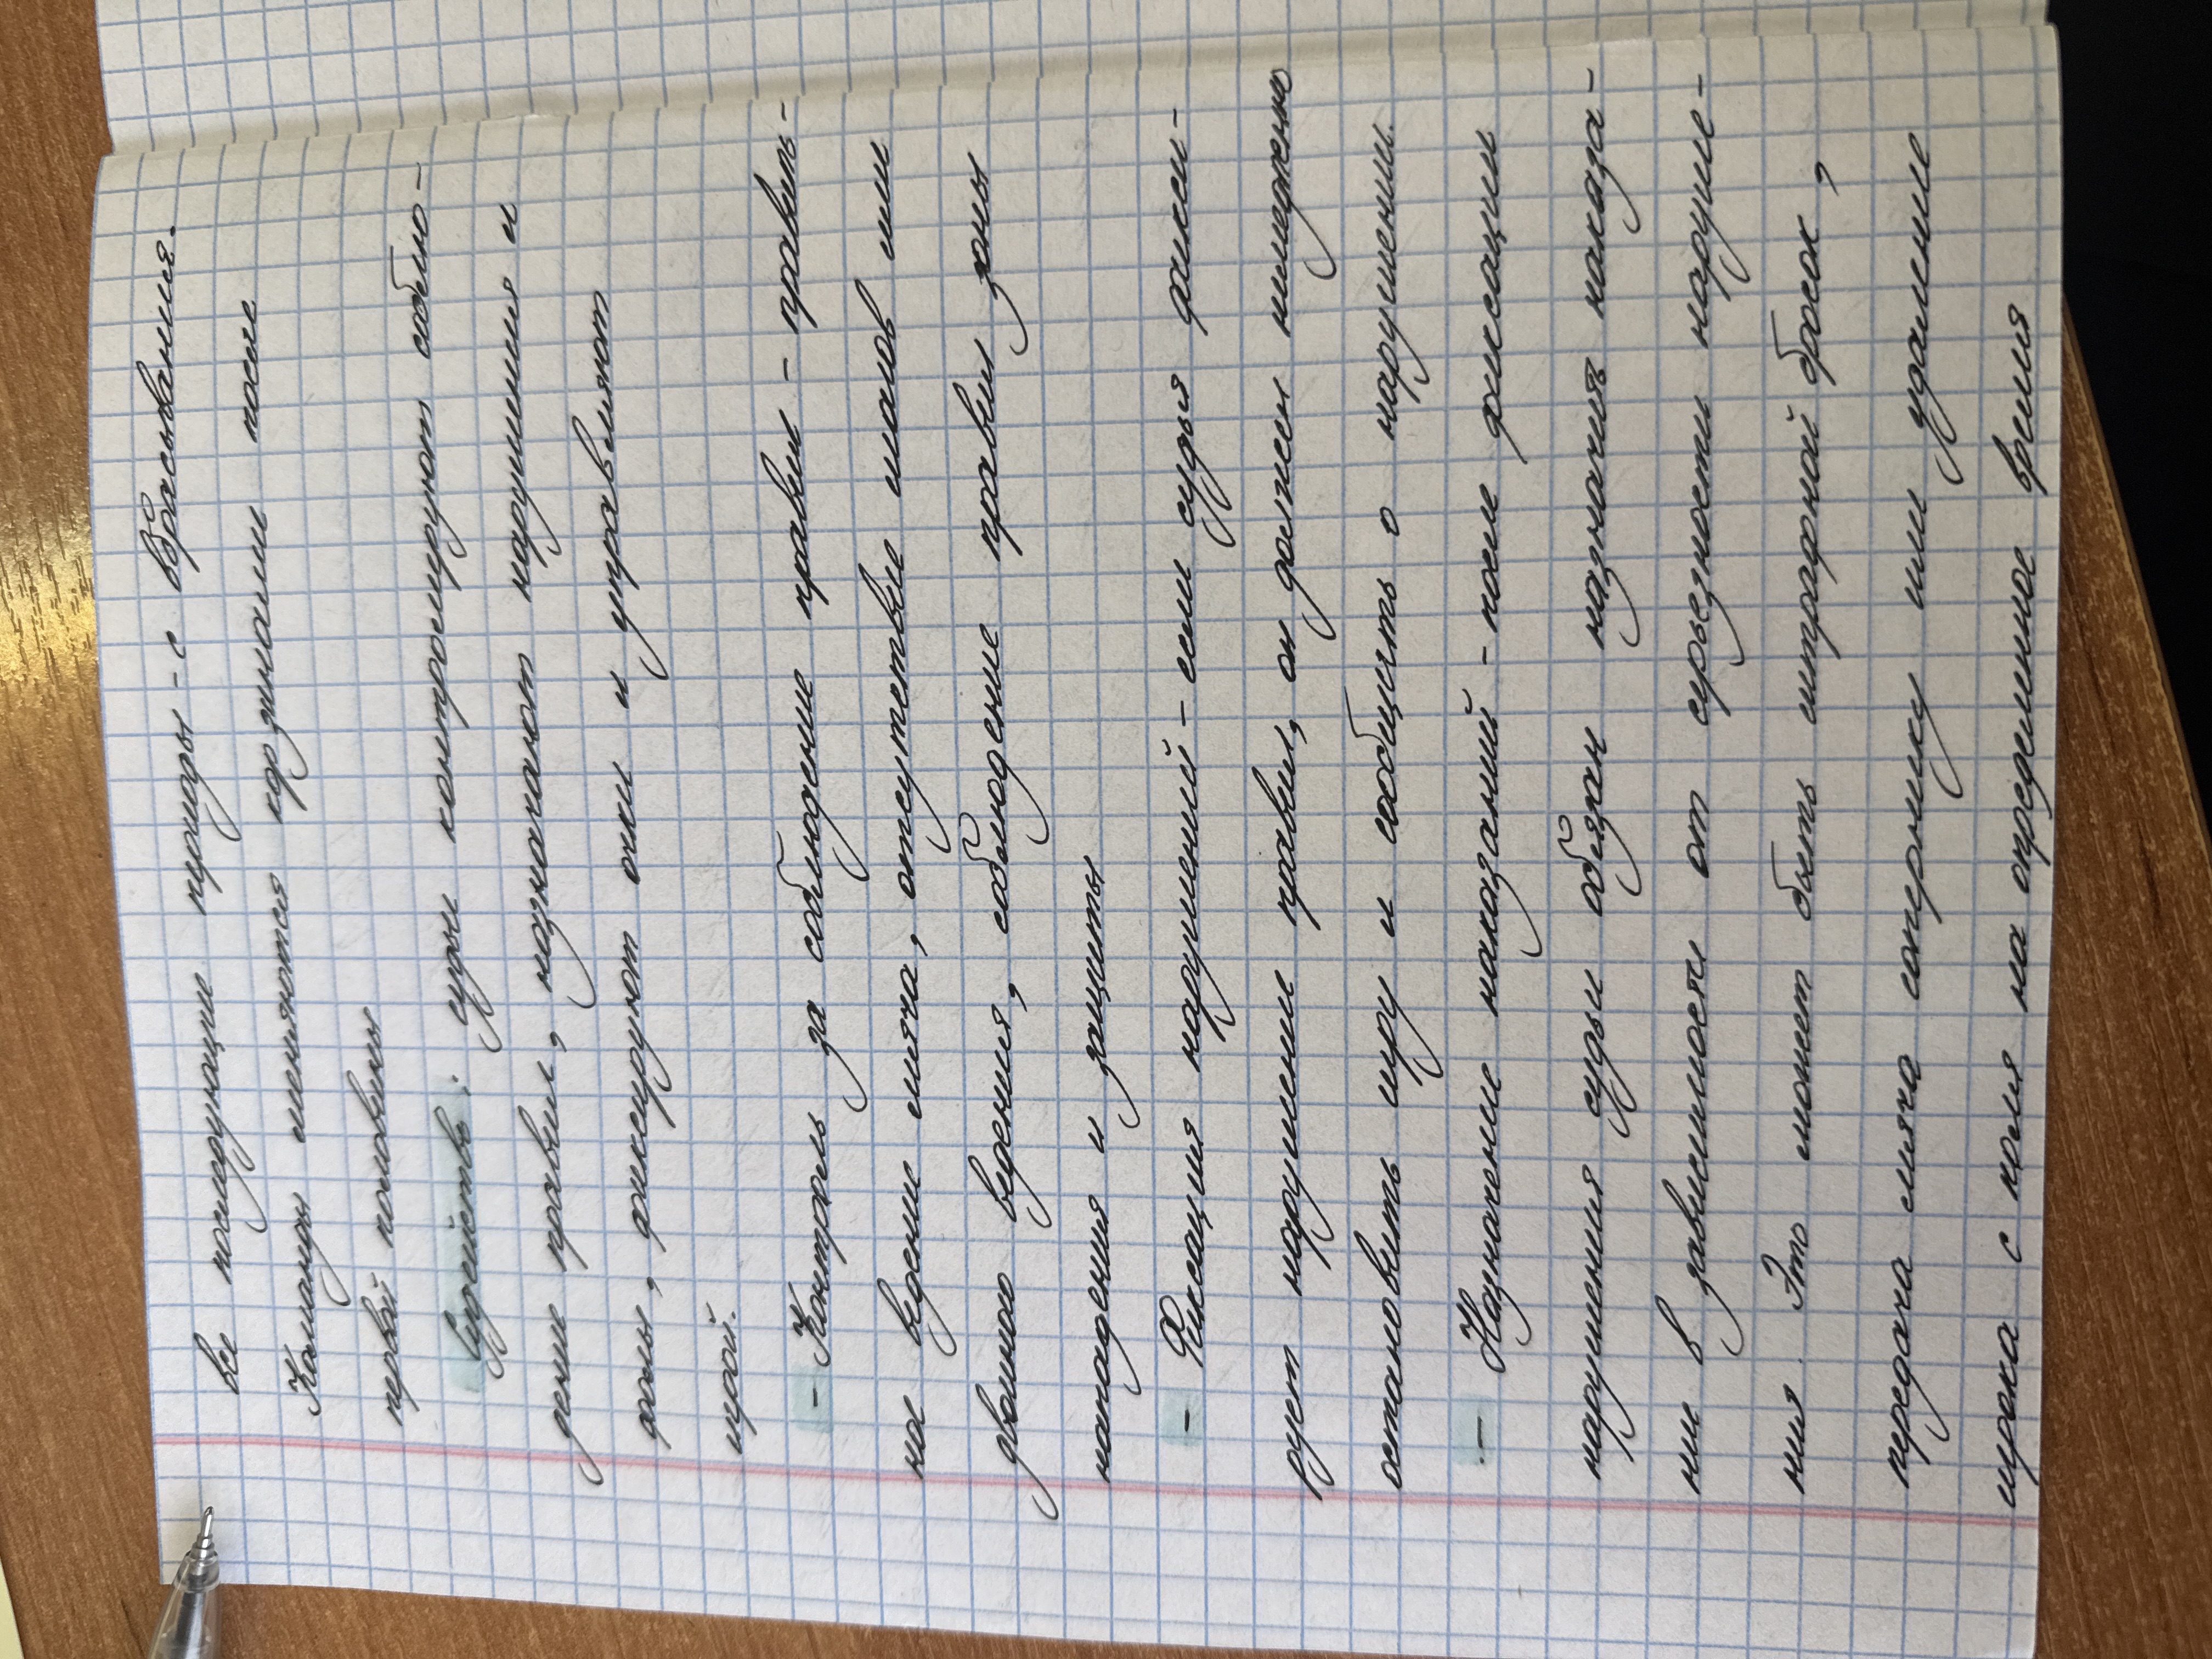 все последующие периоды - с вбрасывания.
Команды меняются корзинами после
первой половины
Судейство: судьи контролируют соблю-
дение правил, назначают нарушения и
фолы, фиксируют очки и управляют
игрой.
- Контроль за соблюдение правил - правиль-
ное ведение мяча, отсутствие шагов или
двойного ведения, соблюдение правил зоны
нападения и защиты
- Фиксация нарушений - если судья фикси-
рует нарушение правил, он должен немедленно
остановить игру и сообщить о нарушении.
- Назначение наказаний - после фиксации
нарушения судьи обязан назначить наказа-
ние в зависимости от серьезности наруше-
ния. Это может быть штрафной бросок,
передача мяча сопернику или удаление
игрока с поля на определенное время